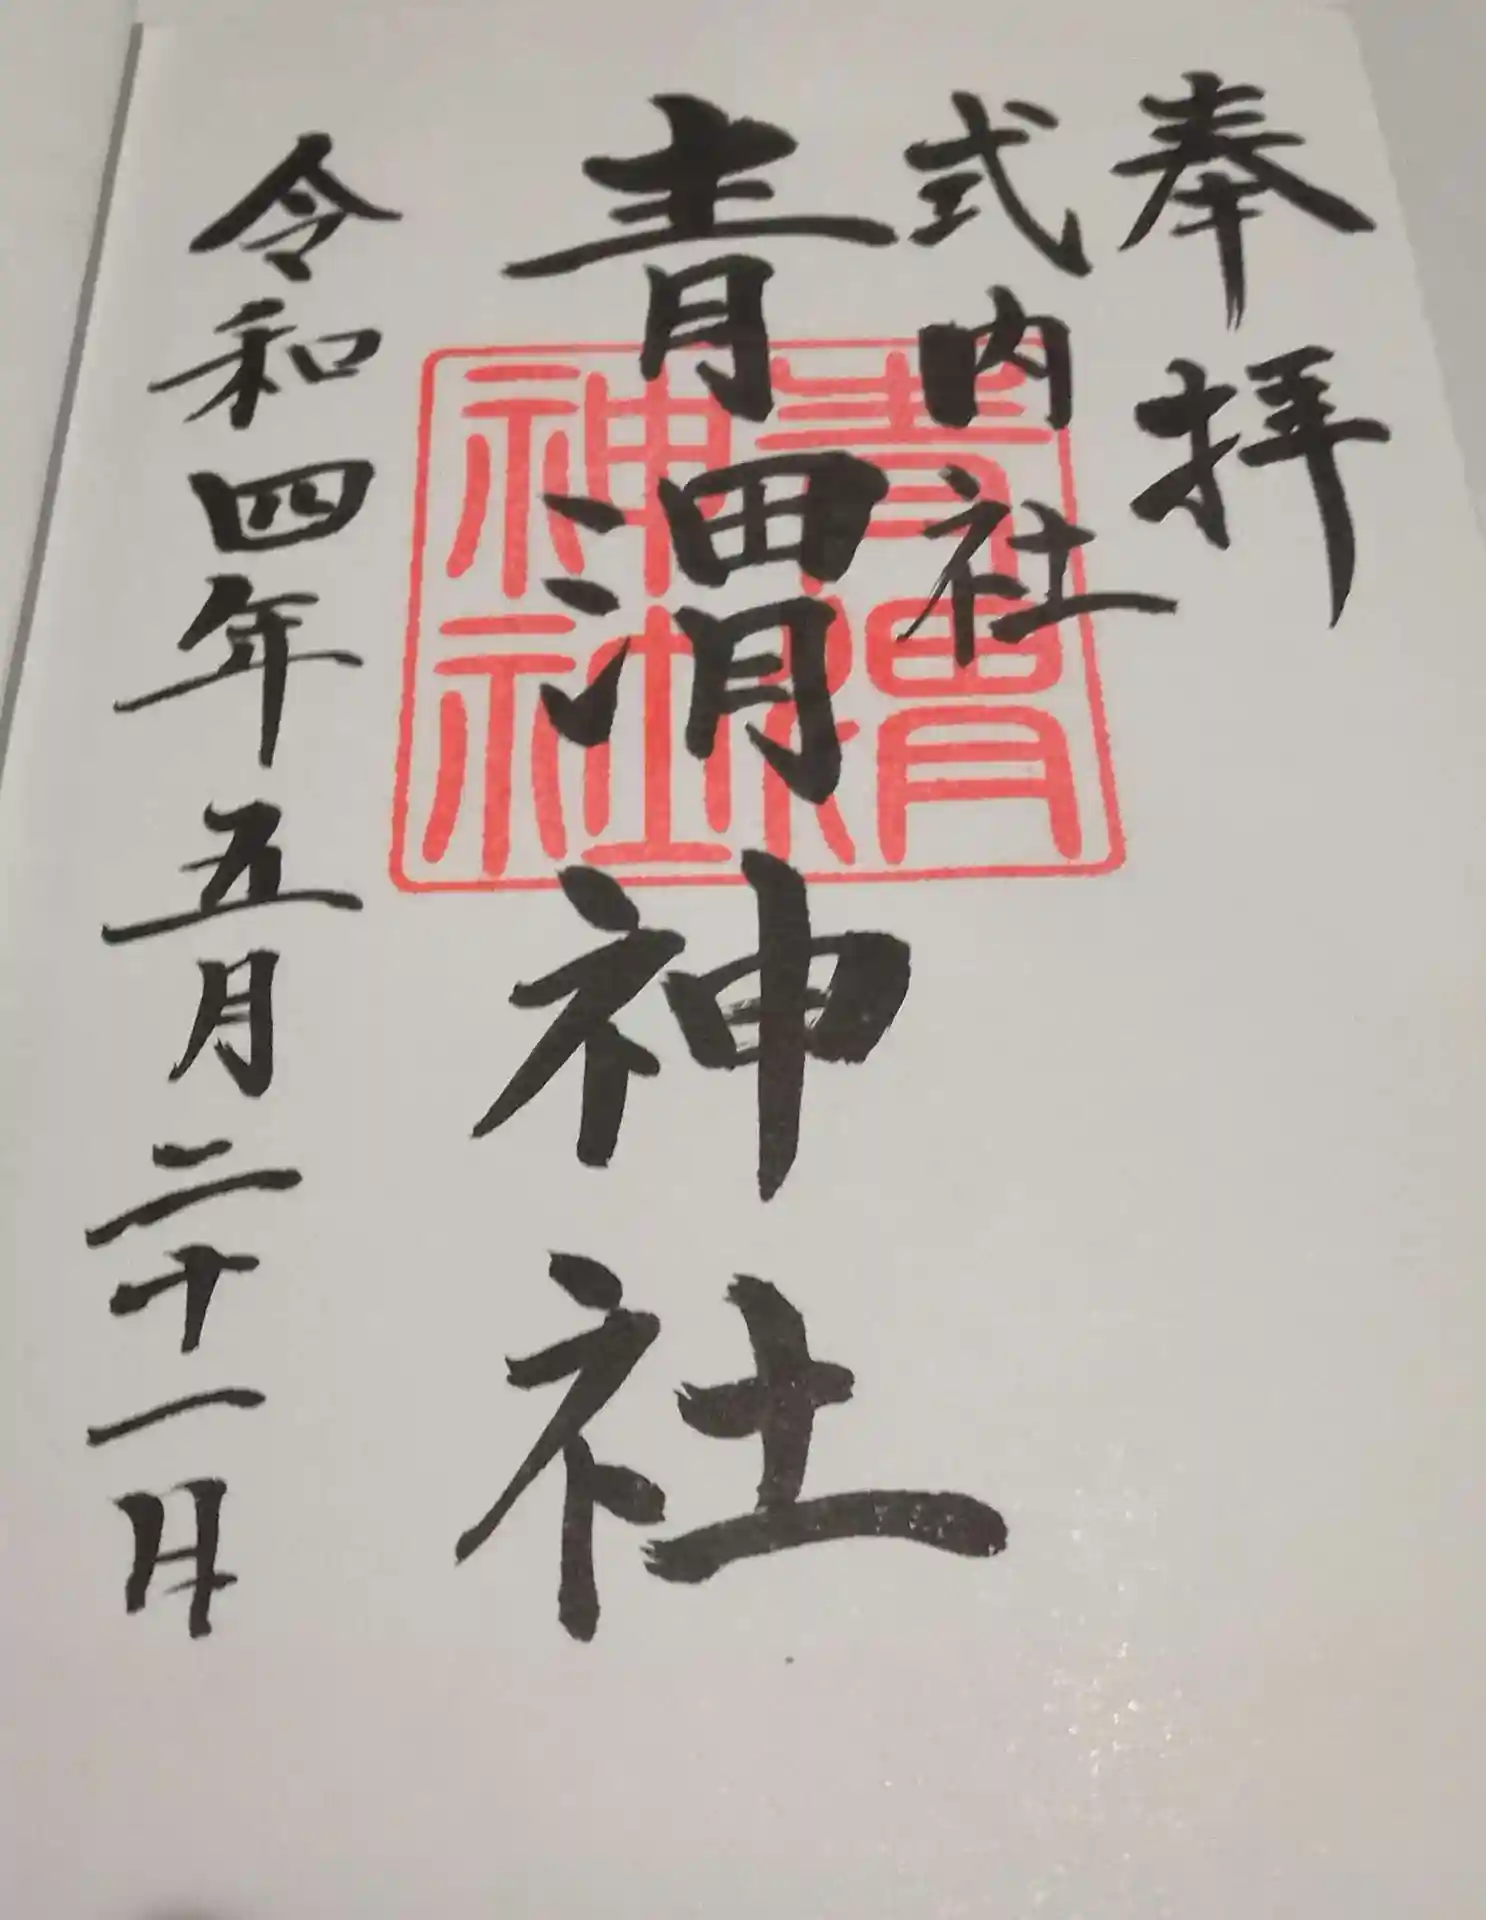 奉拝
式内社
青渭神社
青渭
神社
令和四年五月二十一日